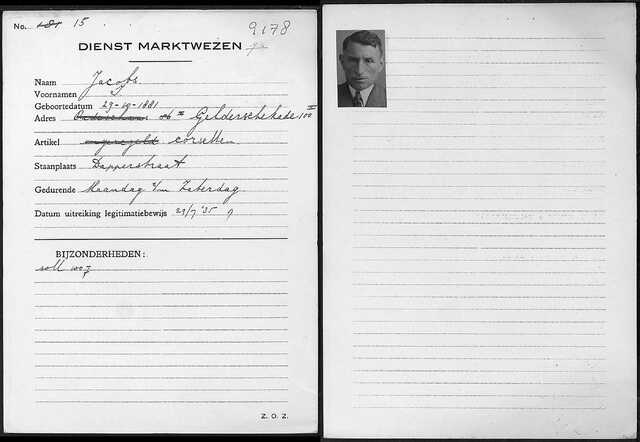 No. 181 15
9178
DIENST MARKTWEZEN
Naam Jacobs.
Voornamen J
Geboortedatum 29-10-1881
Adres Gelderschekade 100 II
Artikel corsetten.
Staanplaats Dapperstraat
Gedurende Maandag t/m Zaterdag.
Datum uitreiking legitimatiebewijs 23/7 '35
BIJZONDERHEDEN:
Z. O. Z.